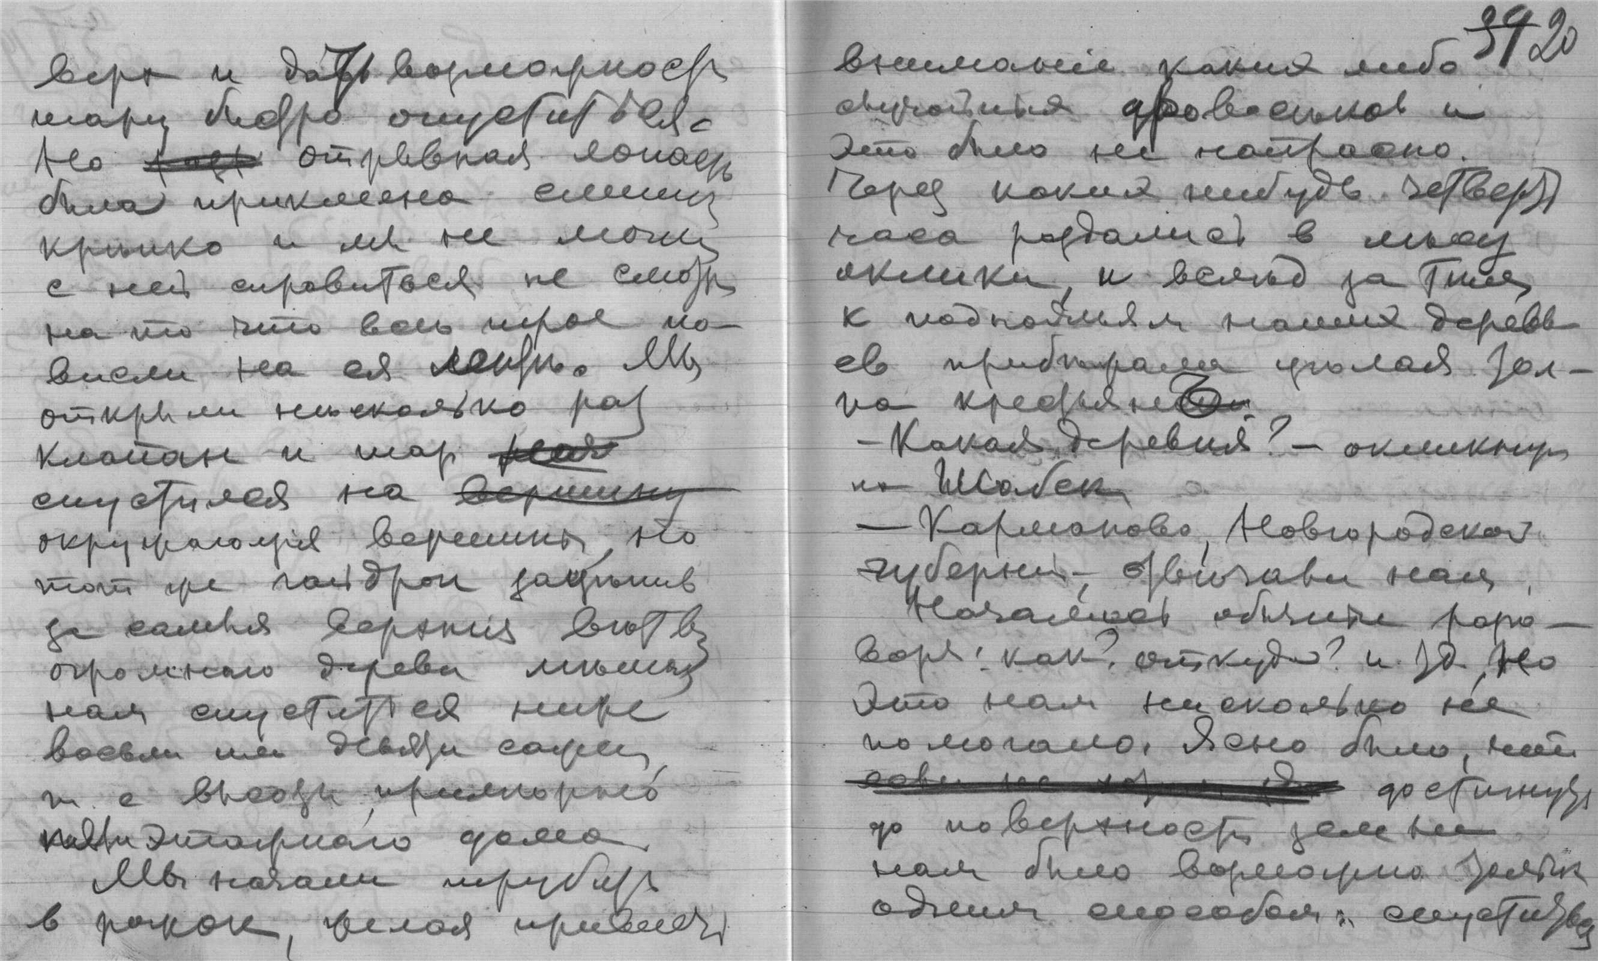 верх и дать возможность
шару быстро опуститься.
Но отрывная лопасть
была приклеена слишком
крепко и мы не могли
с ней справиться не смотря
на то что все трое по-
висли на ея конце. Мы
открыли несколько раз
клапан и шар
спустился на вершину
окружающия вершины, но
тот же гайдроп зацепив
за самыя верхния ветви
огромнаго дерева мешал
нам спуститься ниже
восьми или девяти сажен,
т. е высоты примерно
пятиэтажнаго дома.
Мы начали трубить
в рожок, желая привлечь
39 20
внимание каких либо
случайных дровосеков и
это было не напрасно.
Через каких нибудь четверть
часа раздались в лесу
оклики, и вслед за тем,
к подножиям наших деревь-
ев прибежала целая тол-
па крестьян
– Какая деревня? – окликнул
их
– Карманово, Новгородской
губернии, отвечали нам,
Начались обычные разго-
воры: как? откуда? и тд, но
Это нам нисколько не
помогало. Ясно было, что
достигнуть
до поверхности земли
нам было возможно только
одним способом: спустившись